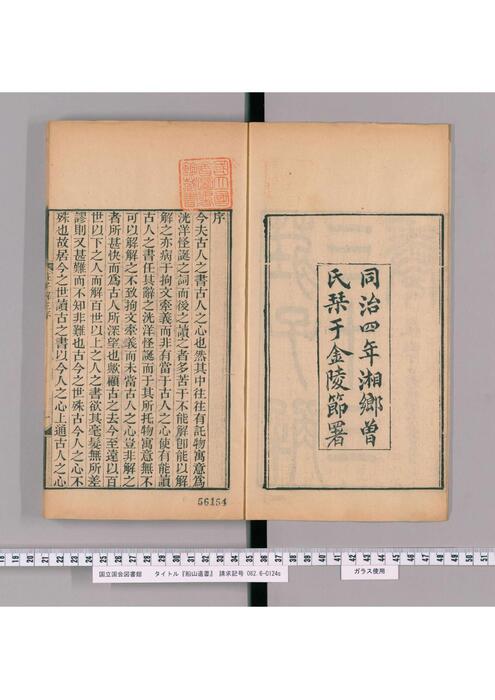 同治四年湘鄉曾
氏栞于金陵節署
序
今夫古人之書古人之心也然其中往往有託物寓意爲
洸洋怪誕之詞而後之讀之者多苦于不能解卽能以解
解之亦病于拘文牽義而非有當于古人之心使有能讀
古人之書任其辭之洸洋怪誕而于其所托物寓意無不
可以解解之不致拘文牽義而未當古人之心豈非解之
者所甚快而爲古人所深望也歟顧古之去今至遠以百
世以下之人而解百世以上之人之書欲其毫髮無所差
謬則又甚難而不知非難也古今之世殊古今人之心不
殊也故居今之世讀古之書以今人之心上通古人之心
56154
國立国会図書館 タイトル『船山遺書』 請求記号 082.6-O124s
ガラス使用
17 18 19 20 21 22 23 24 25 26 27 28 29 30 31 32 33 34 35 36 37 38 39 40 41 42 43 44 45 46 47 48 49 50 51